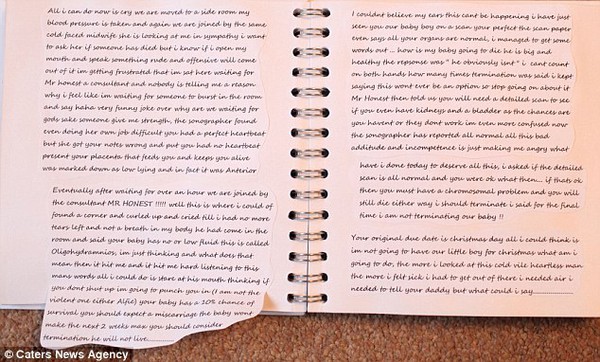 All i can do now is cry we are moved to a side room my
blood pressure is taken and again we are joined by the same
cold faced midwife she is looking at me in sympathy i want
to ask her if someone has died but i know if i open my
mouth and speak something rude and offensive will come
out of it im getting frustrated that im sat here waiting for
Mr honest a consultant and nobody is telling me a reason
why i feel like im waiting for someone to burst in the room
and say haha very funny joke over why are we waiting for
gods sake someone give me strength, the sonographer found
even doing her own job difficult you had a perfect heartbeat
but she got your notes wrong and put you had no heartbeat
present your placenta that feeds you and keeps you alive
was marked down as low lying and in fact it was Anterior
Eventually after waiting for over an hour we are joined by
the consultant MR HONEST !!!!! well this is where i could of
found a corner and curled up and cried till i had no more
tears left and not a breath in my body he had come in the
room and said your baby has no or low fluid this is called
Oligohydramnios, im just thinking and what does that
mean then it hit me and it hit me hard listening to this
mans words all i could do is stare at his mouth thinking if
you dont shut up im going to punch you in (i am not the
violent one either Alfie) your baby has a 10% chance of
survival you should expect a miscarriage the baby wont
make the next 2 weeks max you should consider
termination he will not live......
I couldnt believe my ears this cant be happening i have just
seen you our baby boy on a scan your perfect the scan paper
even says all your organs are normal, i managed to get some
words out ... how is my baby going to die he is big and
healthy the repsonse was " he obviously isnt " i cant count
on both hands how many times termination was said i kept
saying this wont ever be an option so stop going on about it
Mr Honest then told us you will need a detailed scan to see
if you even have kidneys and a bladder as the chances are
you havent or they dont work im even more confused now
the sonographer has reported all normal all this bad
additude and incompetence is just making me angry what
have i done today to deserve all this, i asked if the detailed
scan is all normal and you were ok what then... if thats ok
then you must have a chromosomal problem and you will
still die either way i should terminate i said for the final
time i am not terminating our baby !!
Your original due date is christmas day all i could think is
im not going to have our little boy for christmas what am i
going to do, the more i looked at this cold vile heartless man
the more i felt sick i had to get out of there i needed air i
needed to tell your daddy but what could i say..........
© Caters News Agency